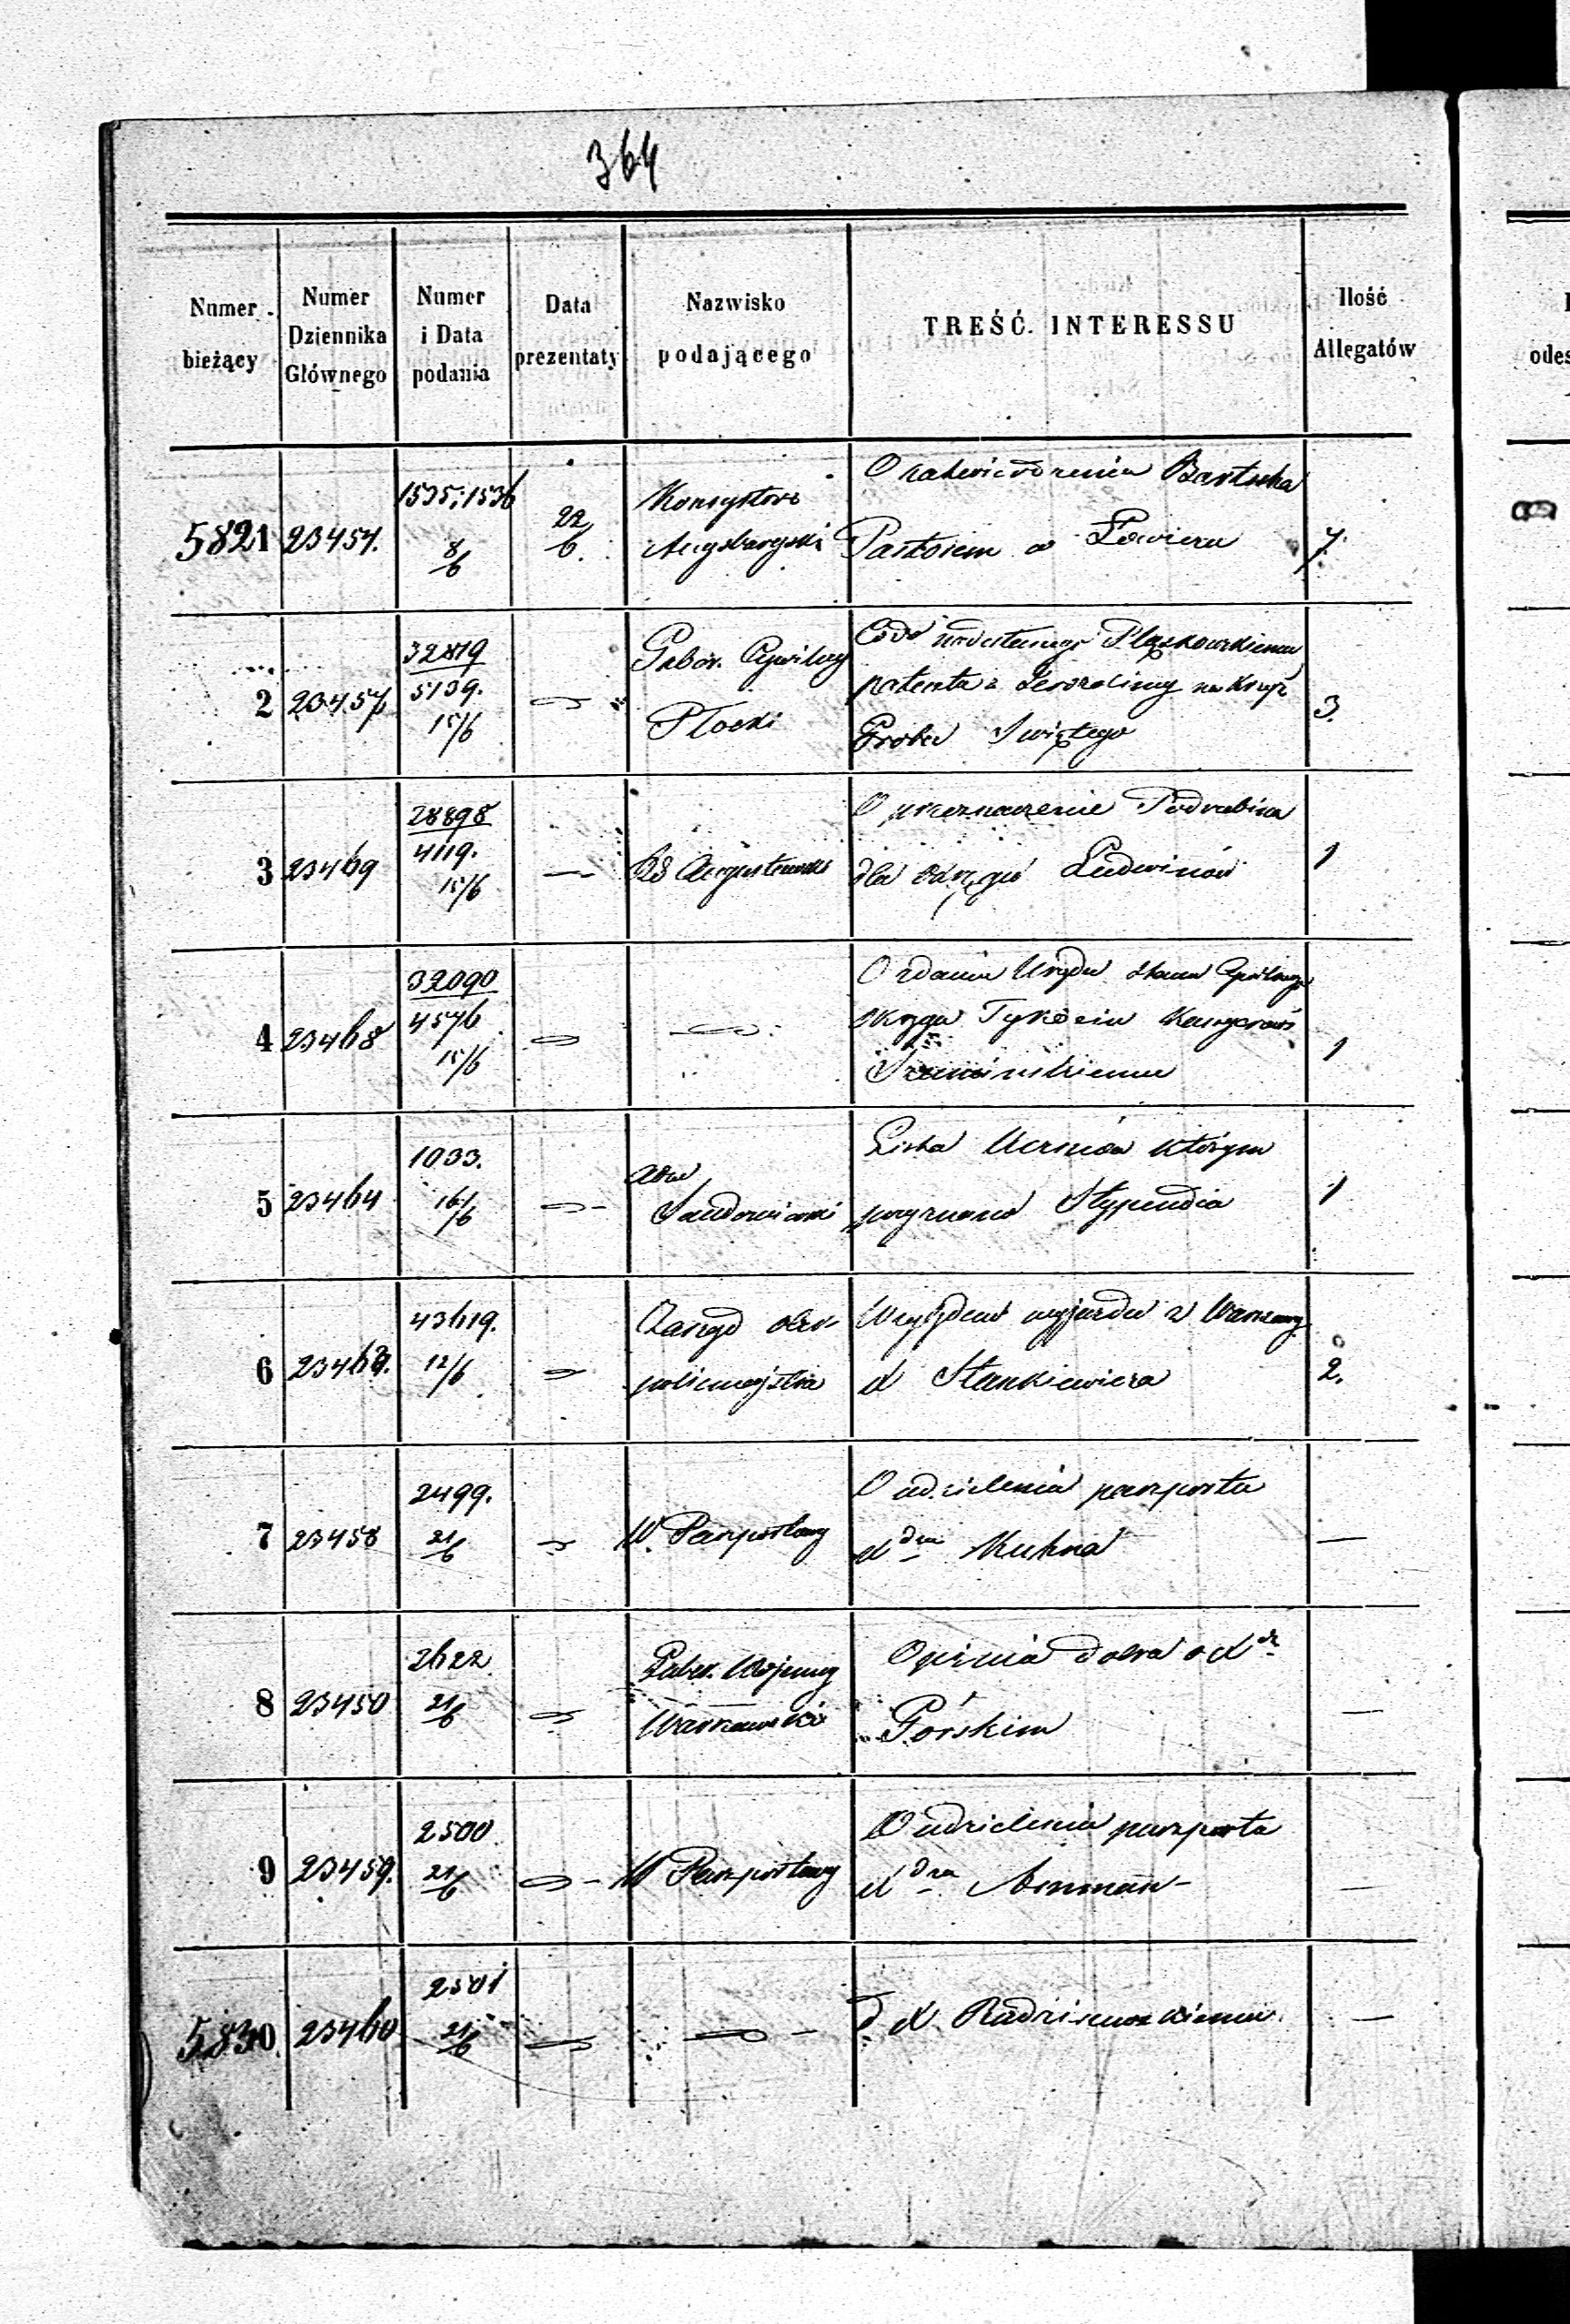 364
Numer bieżący
Numer Dziennika Głównego
Numer i Data podania
Data prezentaty
Nazwisko podającego
TREŚĆ INTERESSU
Ilość Allegatów
odes
5821 23454. 1535; 1536 8/6 22/6. Konsystorz Augsburgski
O zatwierdzenia Bartscha
Pastorem w Łowiczu
7.
2 23457 32819 5139. 15/6 Gubér. Cywilny Płocki
nadesłanego
patentu z Jerozolimy na Krzyż
Grobu Świętego
3.
3 23469 28898 4119. 15/6 — Augustowski
O przeznaczenie Podrabina
dla okręgu Ludwinów
1
4 23468 32090 4576 15/6
O zdaniu Urzędu Stanu Cywilnego
okręgu Tykocin
1
5 23464 1033. 16/6 Sandomierski
Lista Uczniów którym
przyznano Stypendia
1
6 23463. 43619. 12/6 Zarząd Ober-policmajstra
wyjazdu z Warszawy
X Stankiewicza
2.
7 23458 2499. 21/6 W. Paszportowy
O udzielenia paszportu
X dra Kuhna
—
8 23450 2622 21/6 Guber. Wojenny Warszawski
Opinia dobra o X
Górskim
—
9 23459. 2500. 21/6 W Paszportowy
O udzielenia paszportu
X dra
—
5830. 23460 2501 21/6
d X. Radziszewskiemu.
—